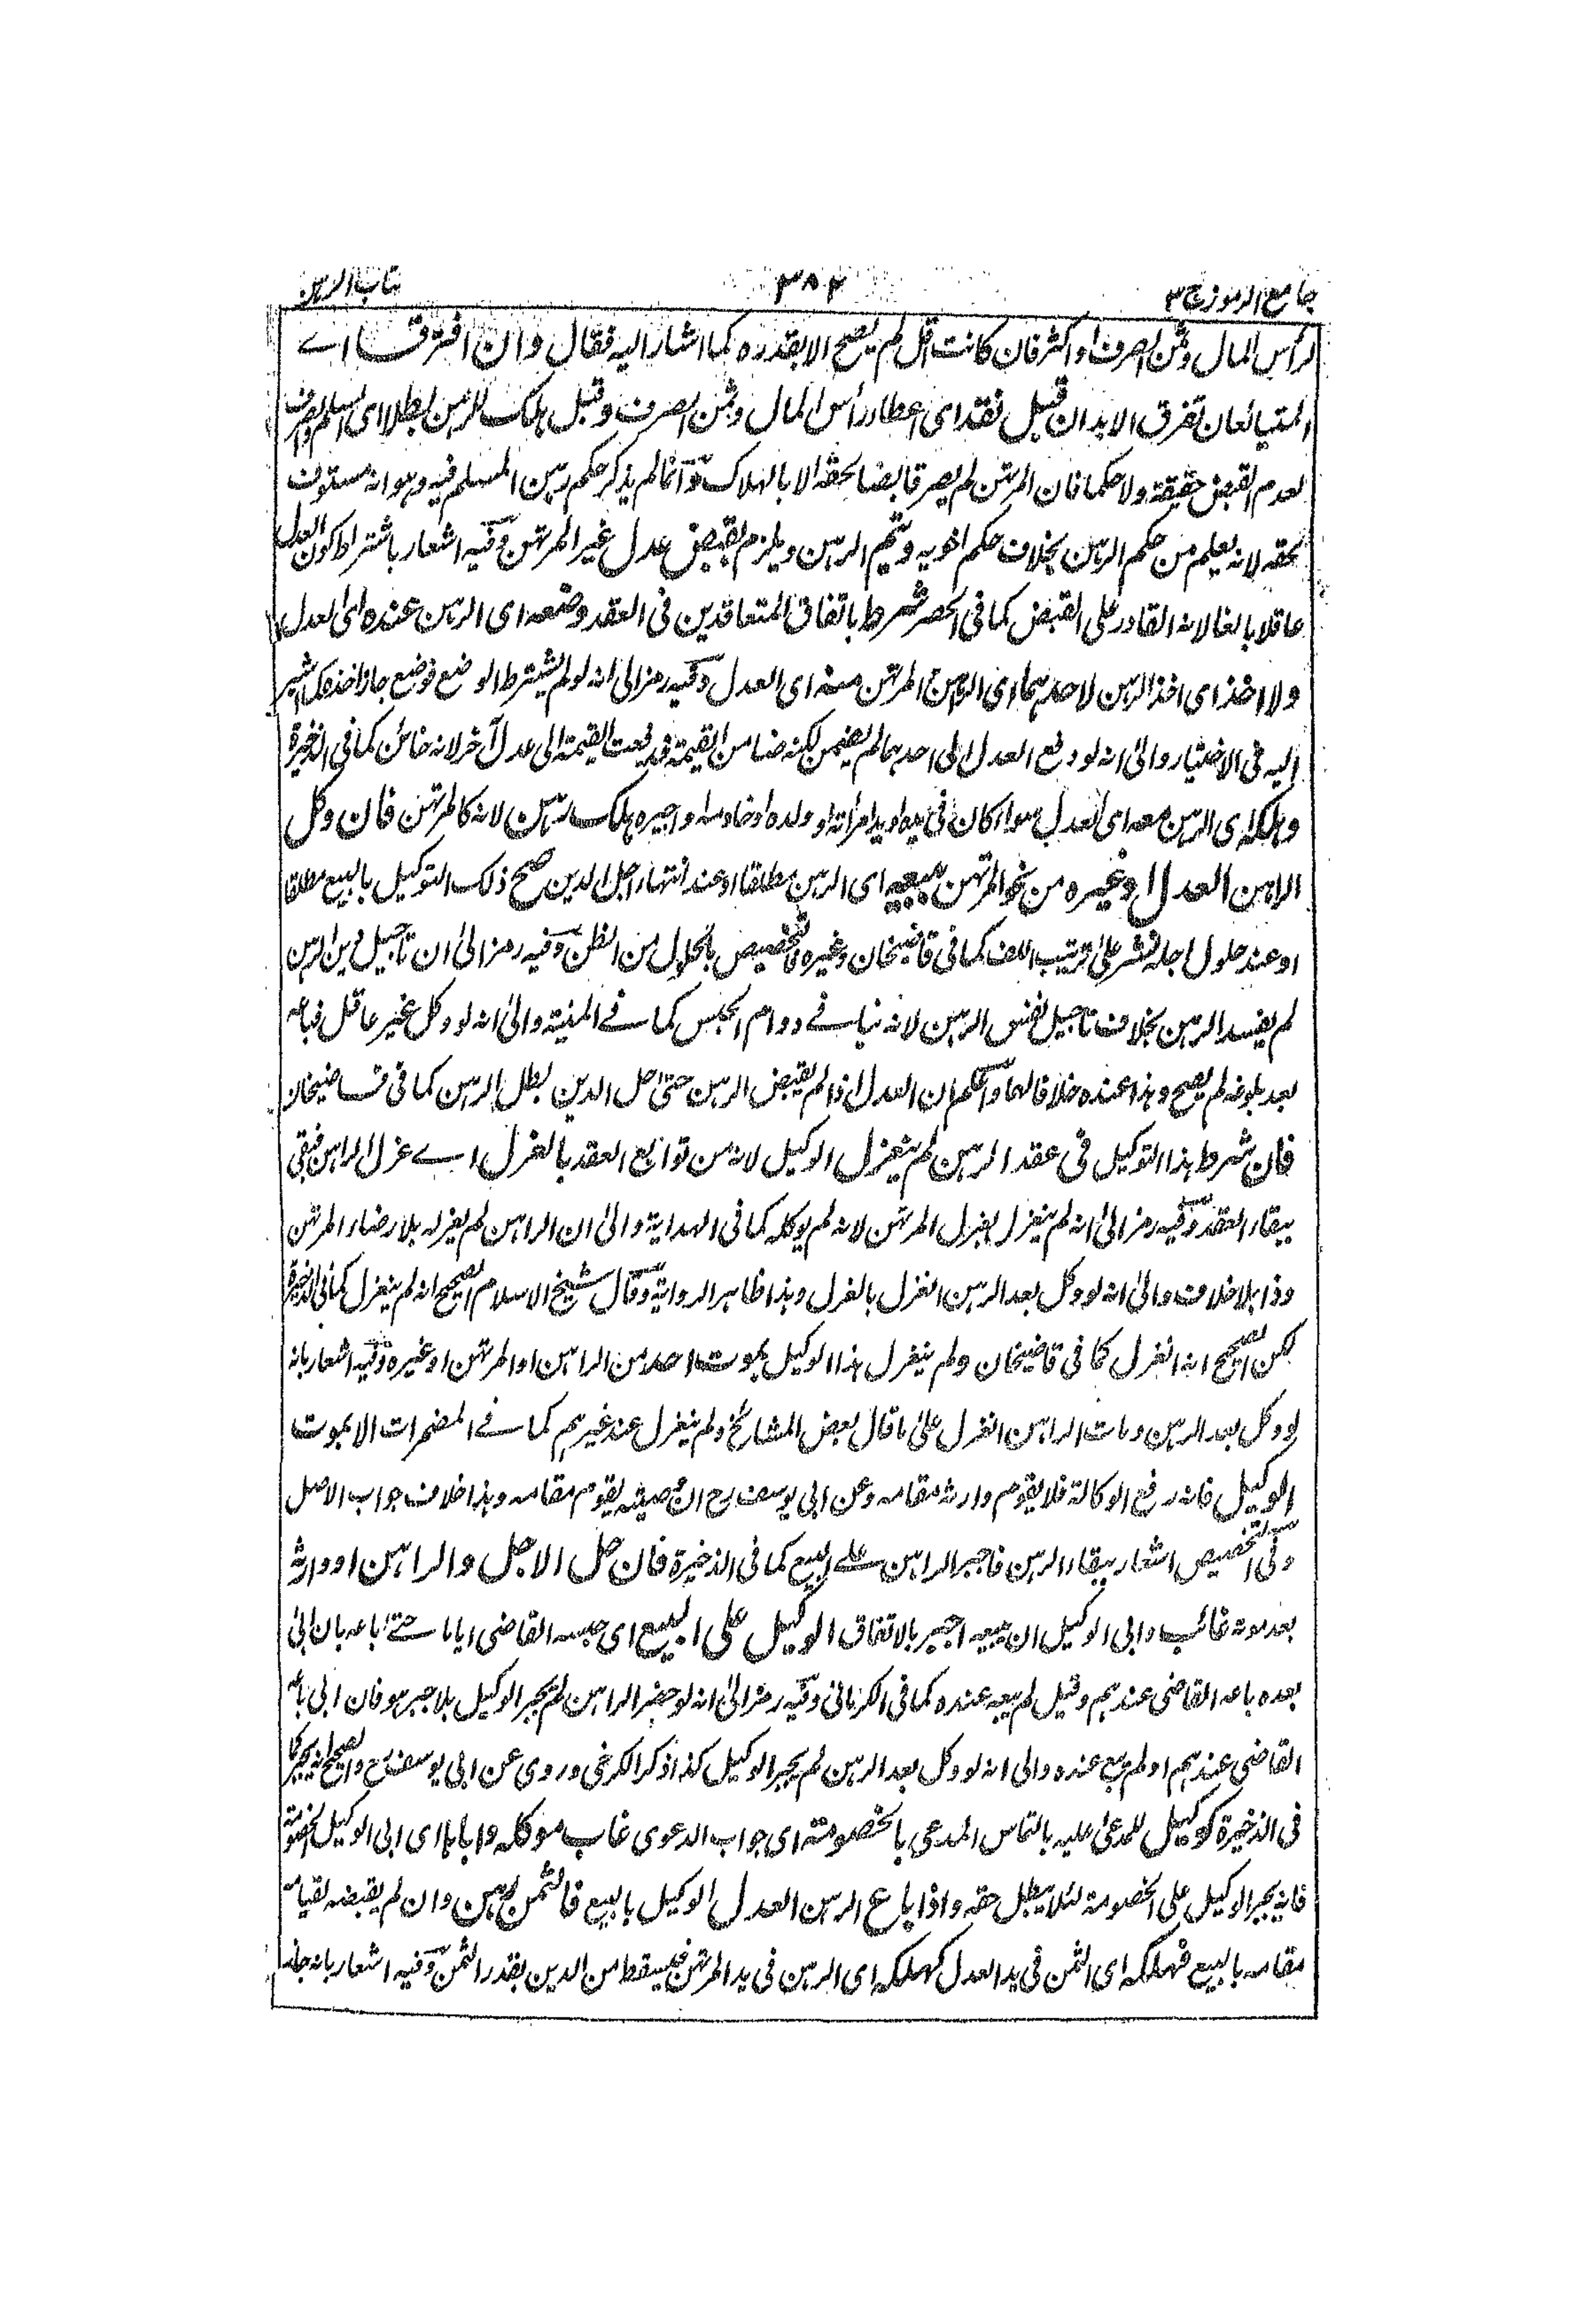 جامع الرموز ج ٣
٣٨٢
كتاب الرهن
لرأس المال وثمن الصرف او اكثر فان كانت اقل لم يصح الا بقدره كما اشار اليه فقال وان افترقا اے
المتبائعان تفرق الابدان قبل نقد اى اعطاء رأس المال وثمن الصرف وقبل هلاك الرهن بطلا اى السلم والصرف
لعدم القبض حقيقة ولا حكما فان المرتهن لم يصر قابضا لحقه الا بالهلاك وانما لم يذكر حكم رهن المسلم فيه وهو انه مستوف
لحقه لانه يعلم من حكم الرهن بخلاف حكم اخويه ويتم الرهن ويلزم بقبض عدل غير المرتهن وفيه اشعار باشتراط كون العدل
عاقلا بالغا لانه القادر على القبض كما فى الحصر شرط باتفاق المتعاقدين فى العقد وضعه اى الرهن عنده اى العدل
ولا اخذ اى اخذ الرهن لاحدهما اى الراهن المرتهن منه اى العدل وفيه رمز الى انه لو لم يشترط الوضع فوضع جاز اخذه كما اشير
اليه فى الاختيار والى انه لو دفع العدل الى احدهما لم يضمن لكنه ضامن القيمة فدفعت القيمة الى عدل آخر لانه خائن كما فى الذخيرة
وهلكه اى الرهن معه اى العدل سواء كان فى يده او يد امرأته او ولده او خادمه او اجيره هلك رهن لانه كالمرتهن فان وكل
الراهن العدل او غيره من نحو المرتهن ببيعه اى الرهن مطلقا او عند انتهاء اجل الدين صح ذلك التوكيل بالبيع مطلقا
او عند حلول اجله فنشر على ترتيب اللف كما فى قاضيخان وغيره فالتخصيص بالحلول من الظن وفيه رمز الى ان تأجيل دين الرهن
لم يفسد الرهن بخلاف تأجيل نفس الرهن لانه ينافے دوام الحبس كما فے المنية والى انه لو وكل غير عاقل فباعه
بعد بلوغه لم يصح وهذا عنده خلافا لهما واعلم ان العدل اذا لم يقبض الرهن حتى حل الدين بطل الرهن كما فى قاضيخان
فان شرط هذا التوكيل فى عقد الرهن لم ينعزل الوكيل لانه من توابع العقد بالعزل اے عزل الراهن فبقى
ببقاء العقد وفيه رمز الى انه لم ينعزل بعزل المرتهن لانه لم يوكله كما فى الهداية والى ان الراهن لم يعزله بلا رضاء المرتهن
وذا بلا خلاف والى انه لو وكل بعد الرهن انعزل بالعزل وهذا ظاهر الرواية وقال شيخ الاسلام الصحيح انه لم ينعزل كما فى الذخيرة
لكن الصحيح انه انعزل كما فى قاضيخان ولم ينعزل هذا الوكيل بموت احد من الراهن او المرتهن او غيره وفيه اشعار بانه
لو وكل بعد الرهن ومات الراهن انعزل على ما قال بعض المشائخ ولم ينعزل عند غيرهم كما فے المضمرات الا بموت
الوكيل فانه رفع الوكالة فلا يقوم وارثه مقامه وعن ابى يوسف رح ان وصيته يقوم مقامه وهذا خلاف جواب الاصل
وفى التخصيص اشعار ببقاء الرهن فاجبر الراهن علے البيع كما فى الذخيرة فان حل الاجل والراهن او وارثه
بعد موته غائب وابى الوكيل ان يبيعه اجبر بالاتفاق الوكيل على البيع اى حبسه القاضى اياما حتے باعه بان ابى
بعده باعه القاضى عندهم وقيل لم يبعه عنده كما فى الكرمانى وفيه رمز الى انه لو حضر الراهن لم يجبر الوكيل بلا جبر هو فان ابى باعه
القاضى عندهم او لم يبع عنده والى انه لو وكل بعد الرهن لم يجبر الوكيل كذا ذكر الكرخى وروى عن ابى يوسف رح والصحيح انه يجبر كما
فى الذخيرة كوكيل للمدعى عليه بالتماس المدعى بالخصومة اى جواب الدعوى غاب موكله واباها اى ابى الوكيل الخصومة
فانه يجبر الوكيل على الخصومة لئلا يبطل حقه واذا باع الرهن العدل الوكيل بالبيع فالثمن رهن وان لم يقبضه لقيامه
مقامه بالبيع فهلكه اى الثمن فى يد العدل كهلكه اى الرهن فى يد المرتهن فيسقط من الدين بقدر الثمن وفيه اشعار بانه جاز